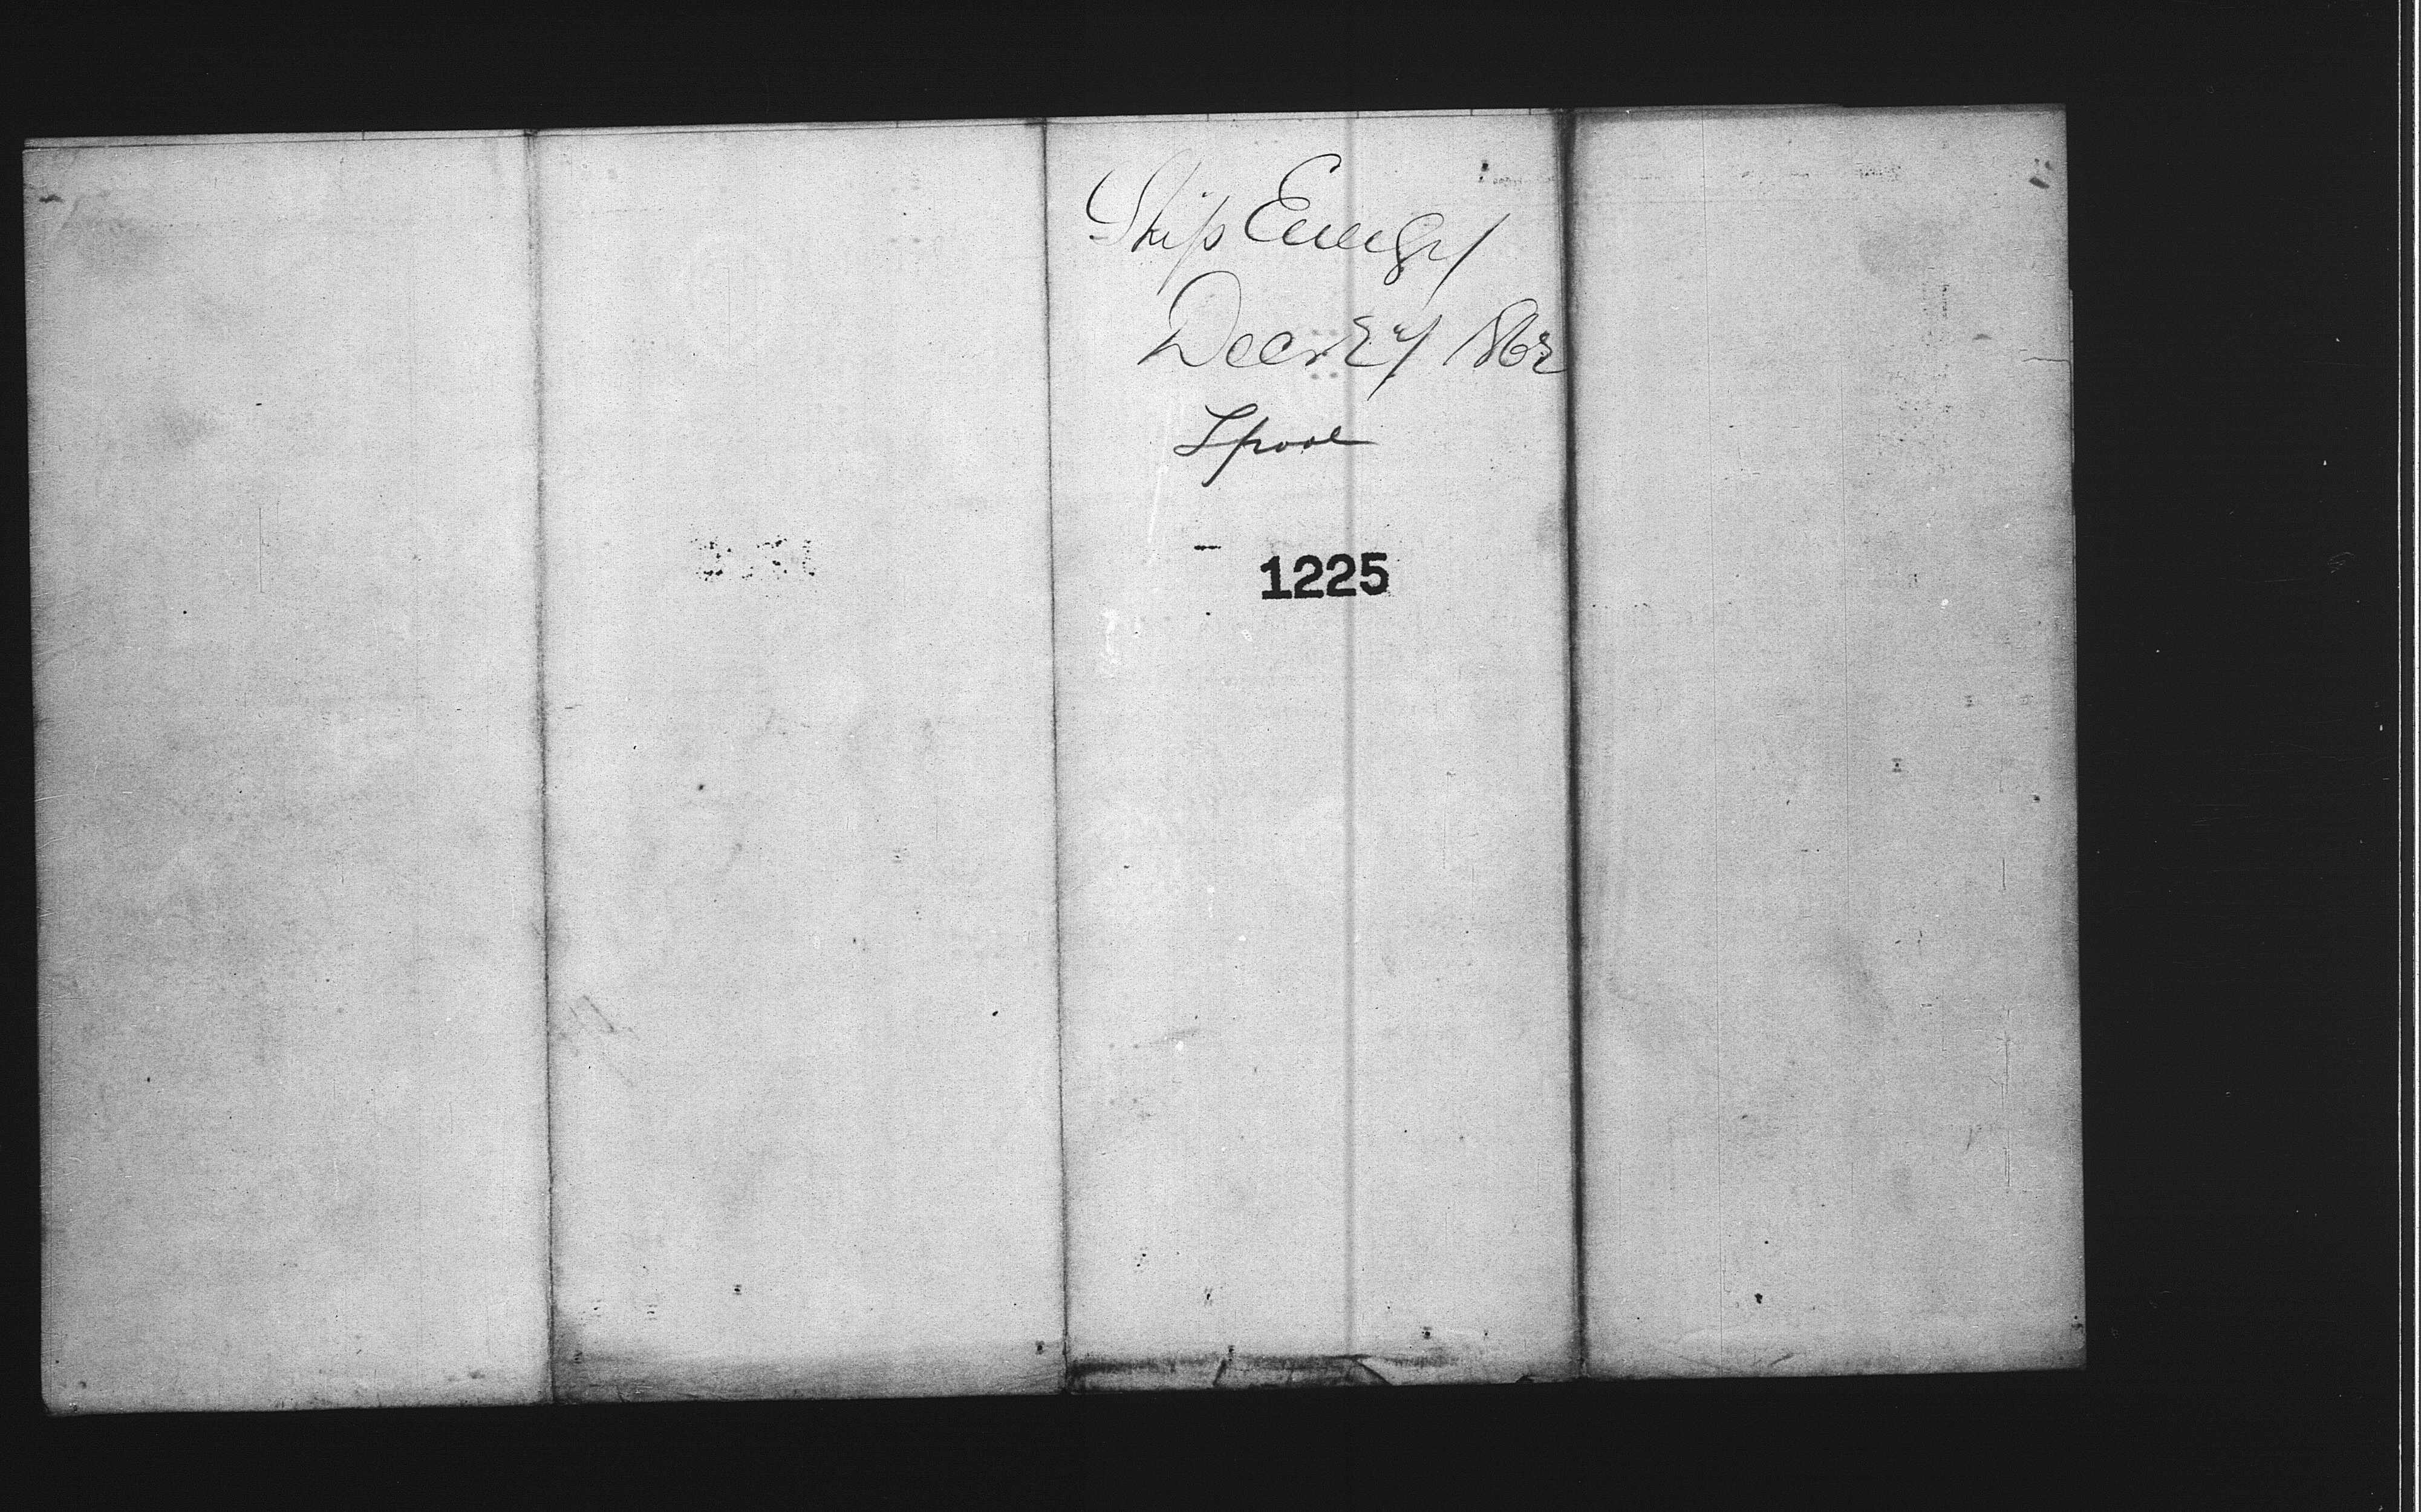 Ship Energy
Decr 24 1862
Lpool
1225